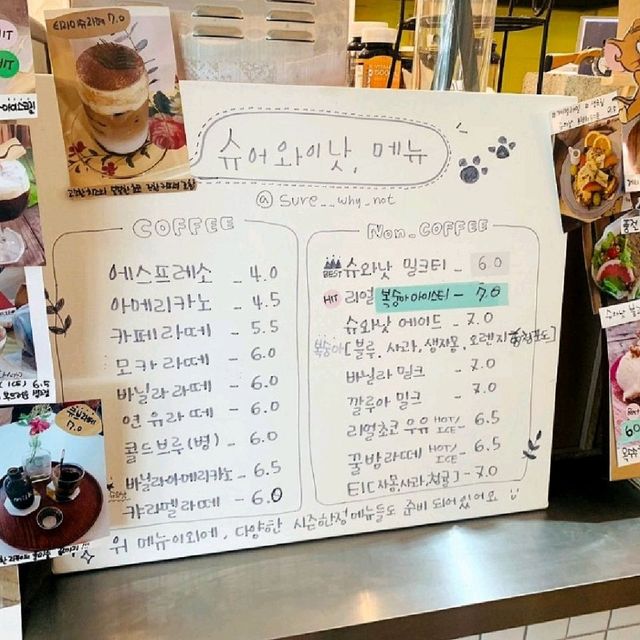 슈어와이낫, 메뉴
@ sure_why_not
COFFEE
에스프레소 - 4.0
아메리카노 - 4.5
카페라떼 - 5.5
모카라떼 - 6.0
바닐라라떼 - 6.0
연유라떼 - 6.0
콜드브루(병) - 6.0
바닐라아메리카노 - 6.5
캬라멜라떼 - 6.0
Non_COFFEE
BEST 슈와낫 밀크티 - 6.0
HIT 리얼 복숭아아이스티 - 7.0
슈와낫 에이드 - 7.0
복숭아 [블루, 사과, 생자몽, 오렌지, 청포도]
바닐라 밀크 - 7.0
깔루아 밀크 - 7.0
리얼초코우유 HOT/ICE - 6.5
꿀밤라떼 HOT/ICE - 6.5
티[자몽,사과,청귤] - 7.0
위 메뉴이외에, 다양한 시즌한정메뉴들도 준비 되어있어요
티라미슈라떼 7.0
HIT
7.0
6.5
6.0